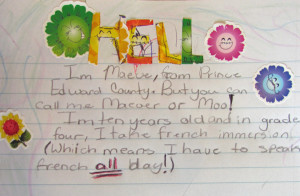 HELLO
I'm Maeve, from Prince
Edward County. But you can
call me Macaer or Moo!
I'm ten years old and in grade
four, I take french immersion
(Which means I have to speak
french all day!)